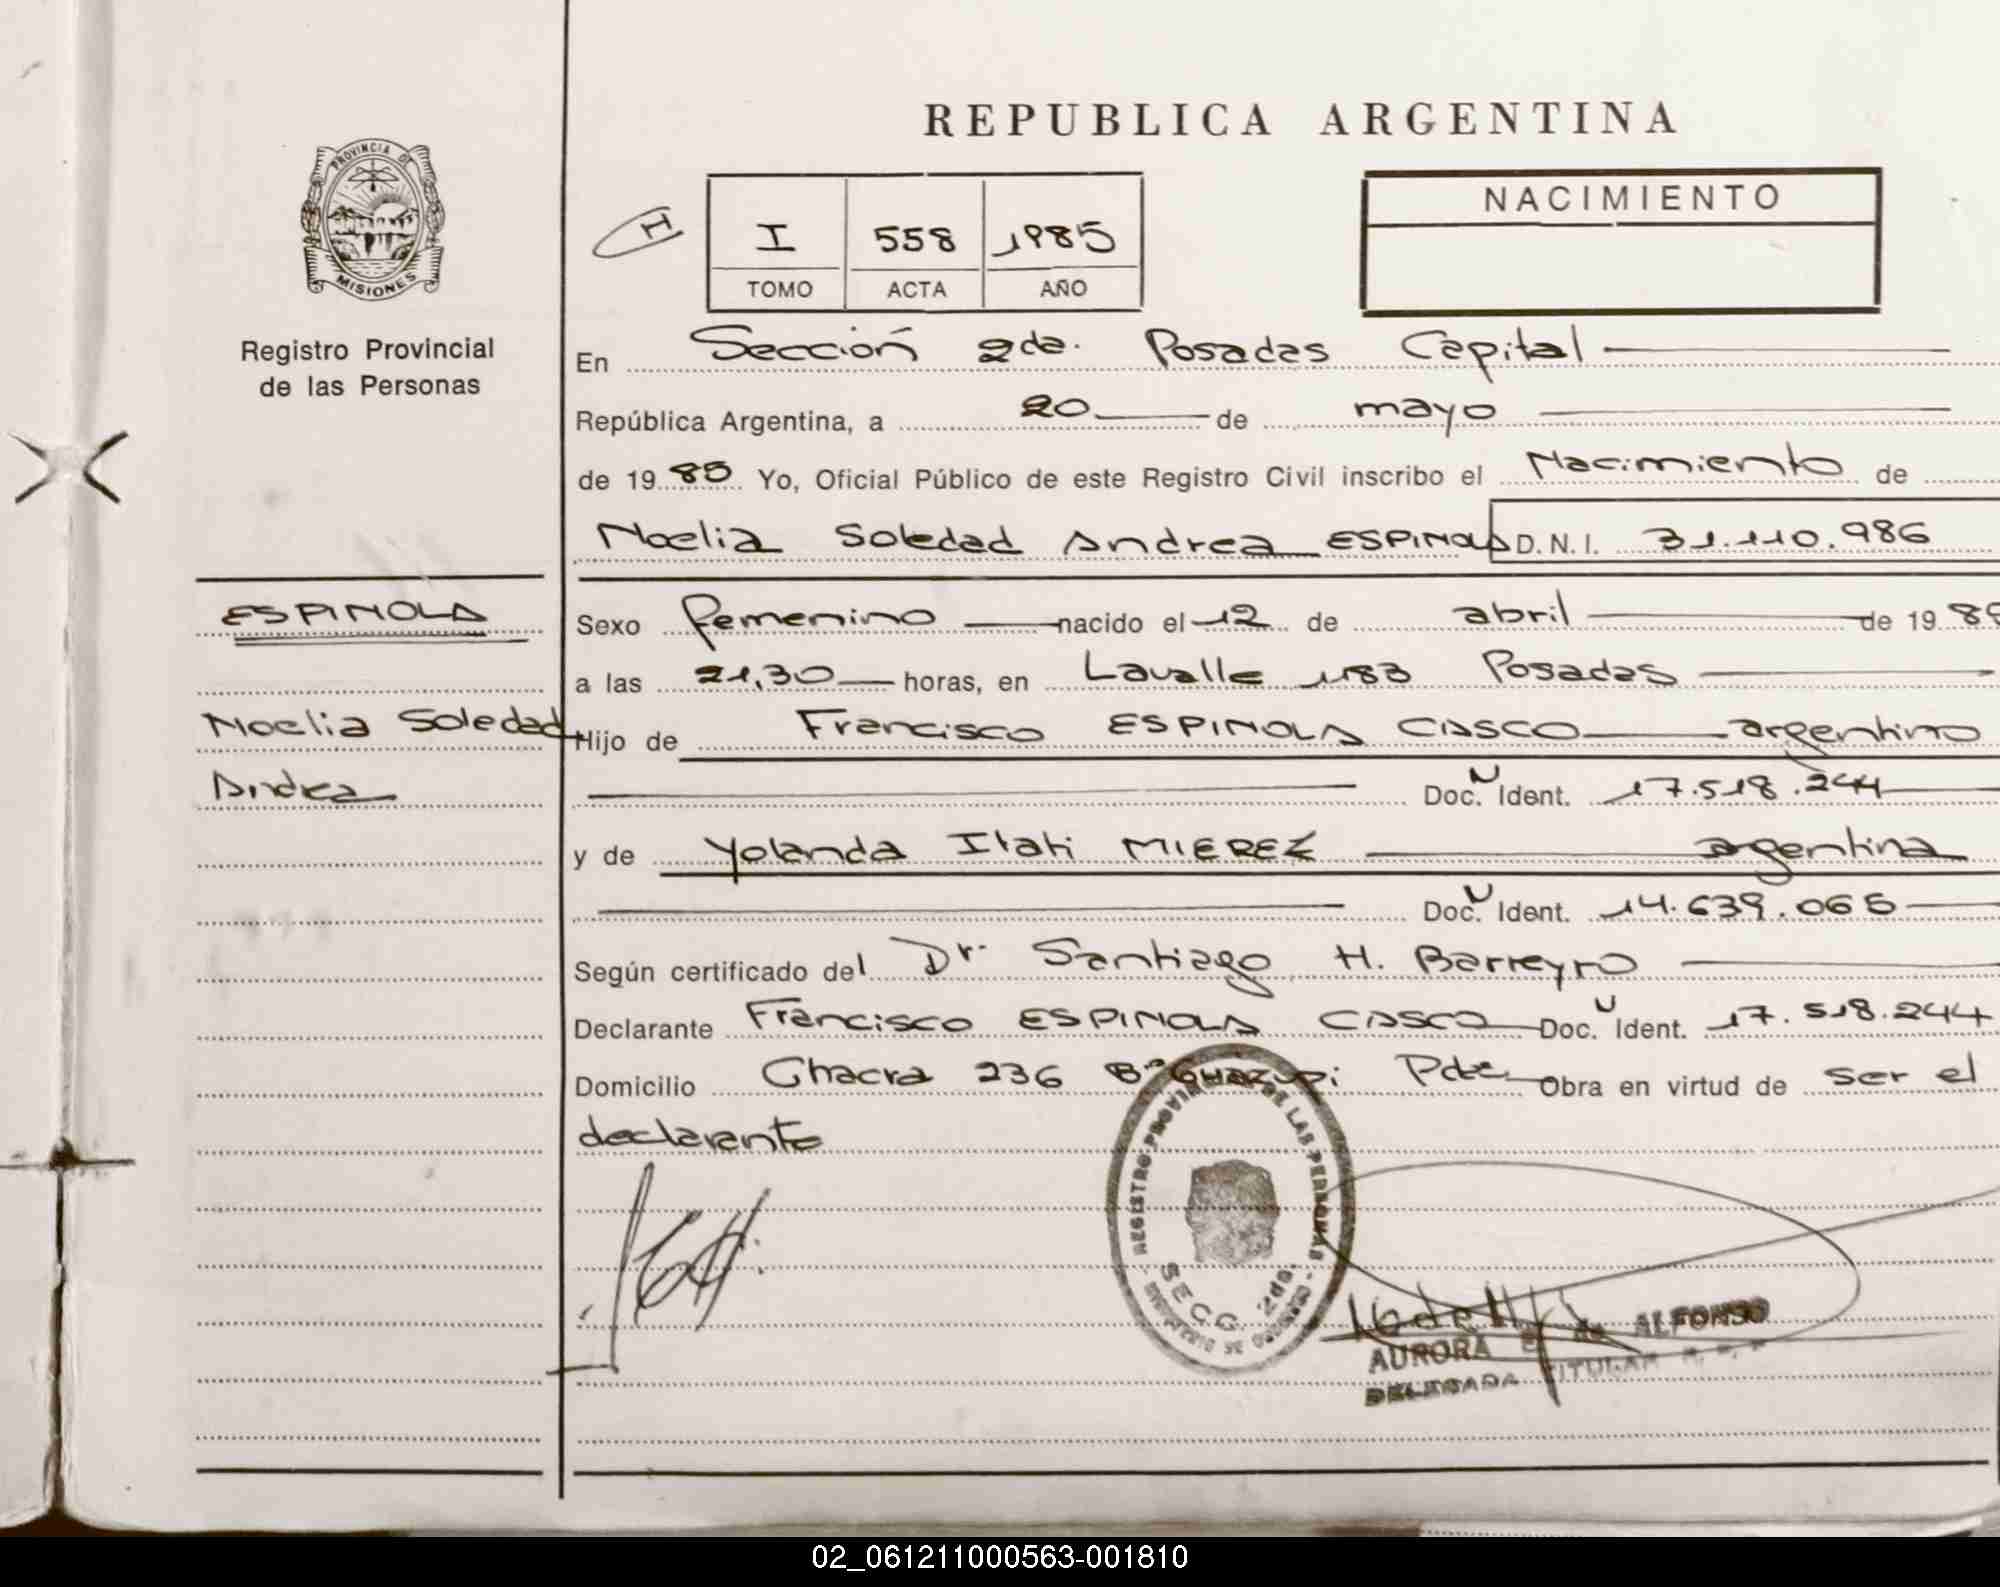 REPUBLICA ARGENTINA
PROVINCIA DE
MISIONES
Registro Provincial
de las Personas
H
I 558 1985
TOMO ACTA AÑO
NACIMIENTO
En Sección 2da. Posadas Capital
República Argentina, a 20 de mayo
de 1985 Yo, Oficial Público de este Registro Civil inscribo el Nacimiento de
Noelia Soledad Andrea ESPINOLA D.N.I. 31.110.986
ESPINOLA
Noelia Soledad
Andrea
Sexo femenino nacido el 12 de abril de 198
a las 21,30 horas, en Lavalle 1183 Posadas
Hijo de Francisco ESPINOLA CASCO argentino
Doc. Ident. 17.518.244
y de Yolanda Itati MIEREZ argentina
Doc. Ident. 14.639.065
Según certificado del Dr. Santiago H. Barreyro
Declarante Francisco ESPINOLA CASCO Doc. Ident. 17.518.244
Domicilio Chacra 236 Bº Obra en virtud de ser el
declarante
REGISTRO PROVINCIAL DE LAS PERSONAS
SECC. 2da.
AURORA E. de ALFONSO
DELEGADA TITULAR
02_061211000563-001810